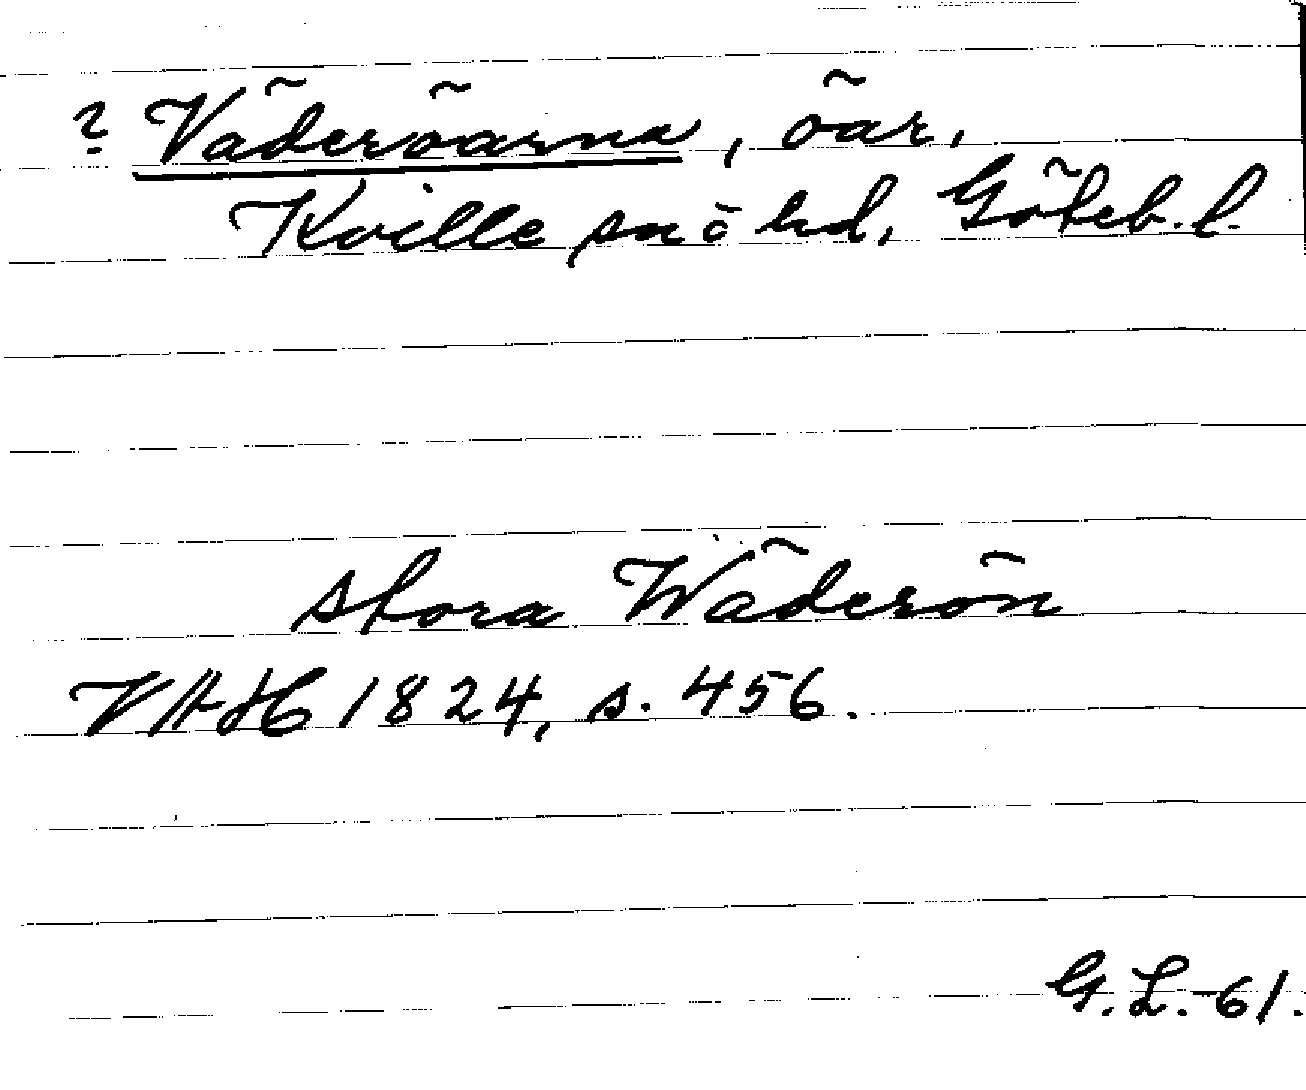 ? Väderöarna, öar,
Kville sn o hd, Göteb. l.
stora Wäderön
VAH 1824, s. 456.
G. L. -61.